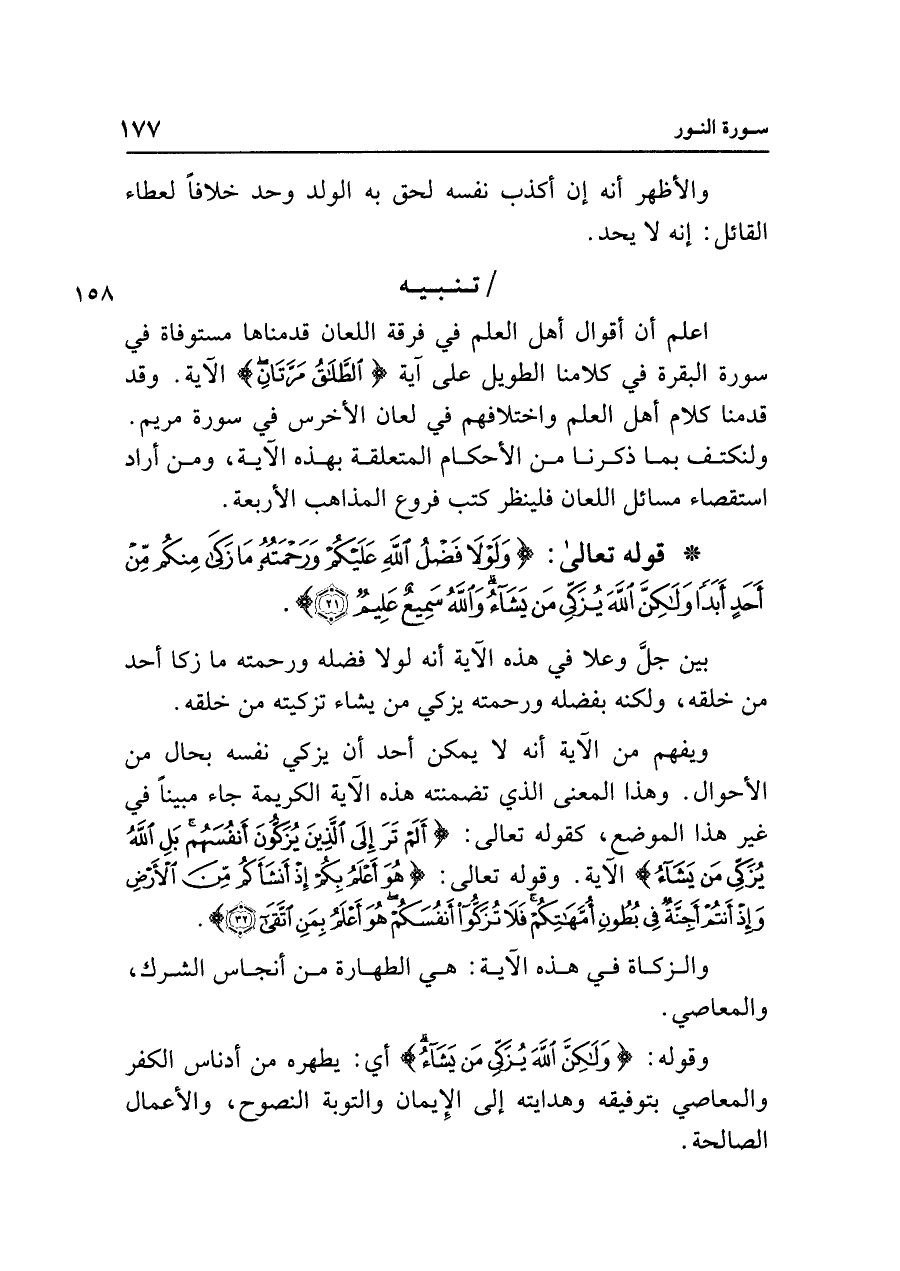 سورة النور ١٧٧
والأظهر أنه إن أكذب نفسه لحق به الولد وحد خلافاً لعطاء
القائل: إنه لا يحد.
/ تنبيه ١٥٨
اعلم أن أقوال أهل العلم في فرقة اللعان قدمناها مستوفاة في
سورة البقرة في كلامنا الطويل على آية ﴿ ٱلطَّلَٰقُ مَرَّتَانِۖ ﴾ الآية. وقد
قدمنا كلام أهل العلم واختلافهم في لعان الأخرس في سورة مريم.
ولنكتف بما ذكرنا من الأحكام المتعلقة بهذه الآية، ومن أراد
استقصاء مسائل اللعان فلينظر كتب فروع المذاهب الأربعة.
* قوله تعالىٰ: ﴿ وَلَوۡلَا فَضۡلُ ٱللَّهِ عَلَيۡكُمۡ وَرَحۡمَتُهُۥ مَا زَكَىٰ مِنكُم مِّنۡ
أَحَدٍ أَبَدٗا وَلَٰكِنَّ ٱللَّهَ يُزَكِّي مَن يَشَآءُۗ وَٱللَّهُ سَمِيعٌ عَلِيمٞ ٢١ ﴾.
بين جلَّ وعلا في هذه الآية أنه لولا فضله ورحمته ما زكا أحد
من خلقه، ولكنه بفضله ورحمته يزكي من يشاء تزكيته من خلقه.
ويفهم من الآية أنه لا يمكن أحد أن يزكي نفسه بحال من
الأحوال. وهذا المعنى الذي تضمنته هذه الآية الكريمة جاء مبيناً في
غير هذا الموضع، كقوله تعالى: ﴿ أَلَمۡ تَرَ إِلَى ٱلَّذِينَ يُزَكُّونَ أَنفُسَهُمۚ بَلِ ٱللَّهُ
يُزَكِّي مَن يَشَآءُ ﴾ الآية. وقوله تعالى: ﴿ هُوَ أَعۡلَمُ بِكُمۡ إِذۡ أَنشَأَكُم مِّنَ ٱلۡأَرۡضِ
وَإِذۡ أَنتُمۡ أَجِنَّةٞ فِي بُطُونِ أُمَّهَٰتِكُمۡۖ فَلَا تُزَكُّوٓاْ أَنفُسَكُمۡۖ هُوَ أَعۡلَمُ بِمَنِ ٱتَّقَىٰٓ ٣٢ ﴾.
والزكاة في هذه الآية: هي الطهارة من أنجاس الشرك،
والمعاصي.
وقوله: ﴿ وَلَٰكِنَّ ٱللَّهَ يُزَكِّي مَن يَشَآءُۗ ﴾ أي: يطهره من أدناس الكفر
والمعاصي بتوفيقه وهدايته إلى الإيمان والتوبة النصوح، والأعمال
الصالحة.